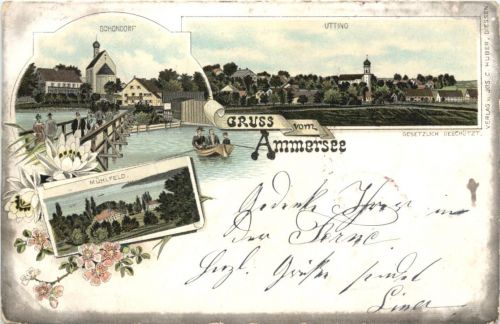 SCHONDORF
UTTING
VERLAG v. JOS. C. HUBER, DIESSEN
GRUSS vom
Ammersee
GESETZLICH GESCHÜTZT.
MÜHLFELD.
Gedenke Ihrer in
der Ferne
Herzl. Grüße sendet